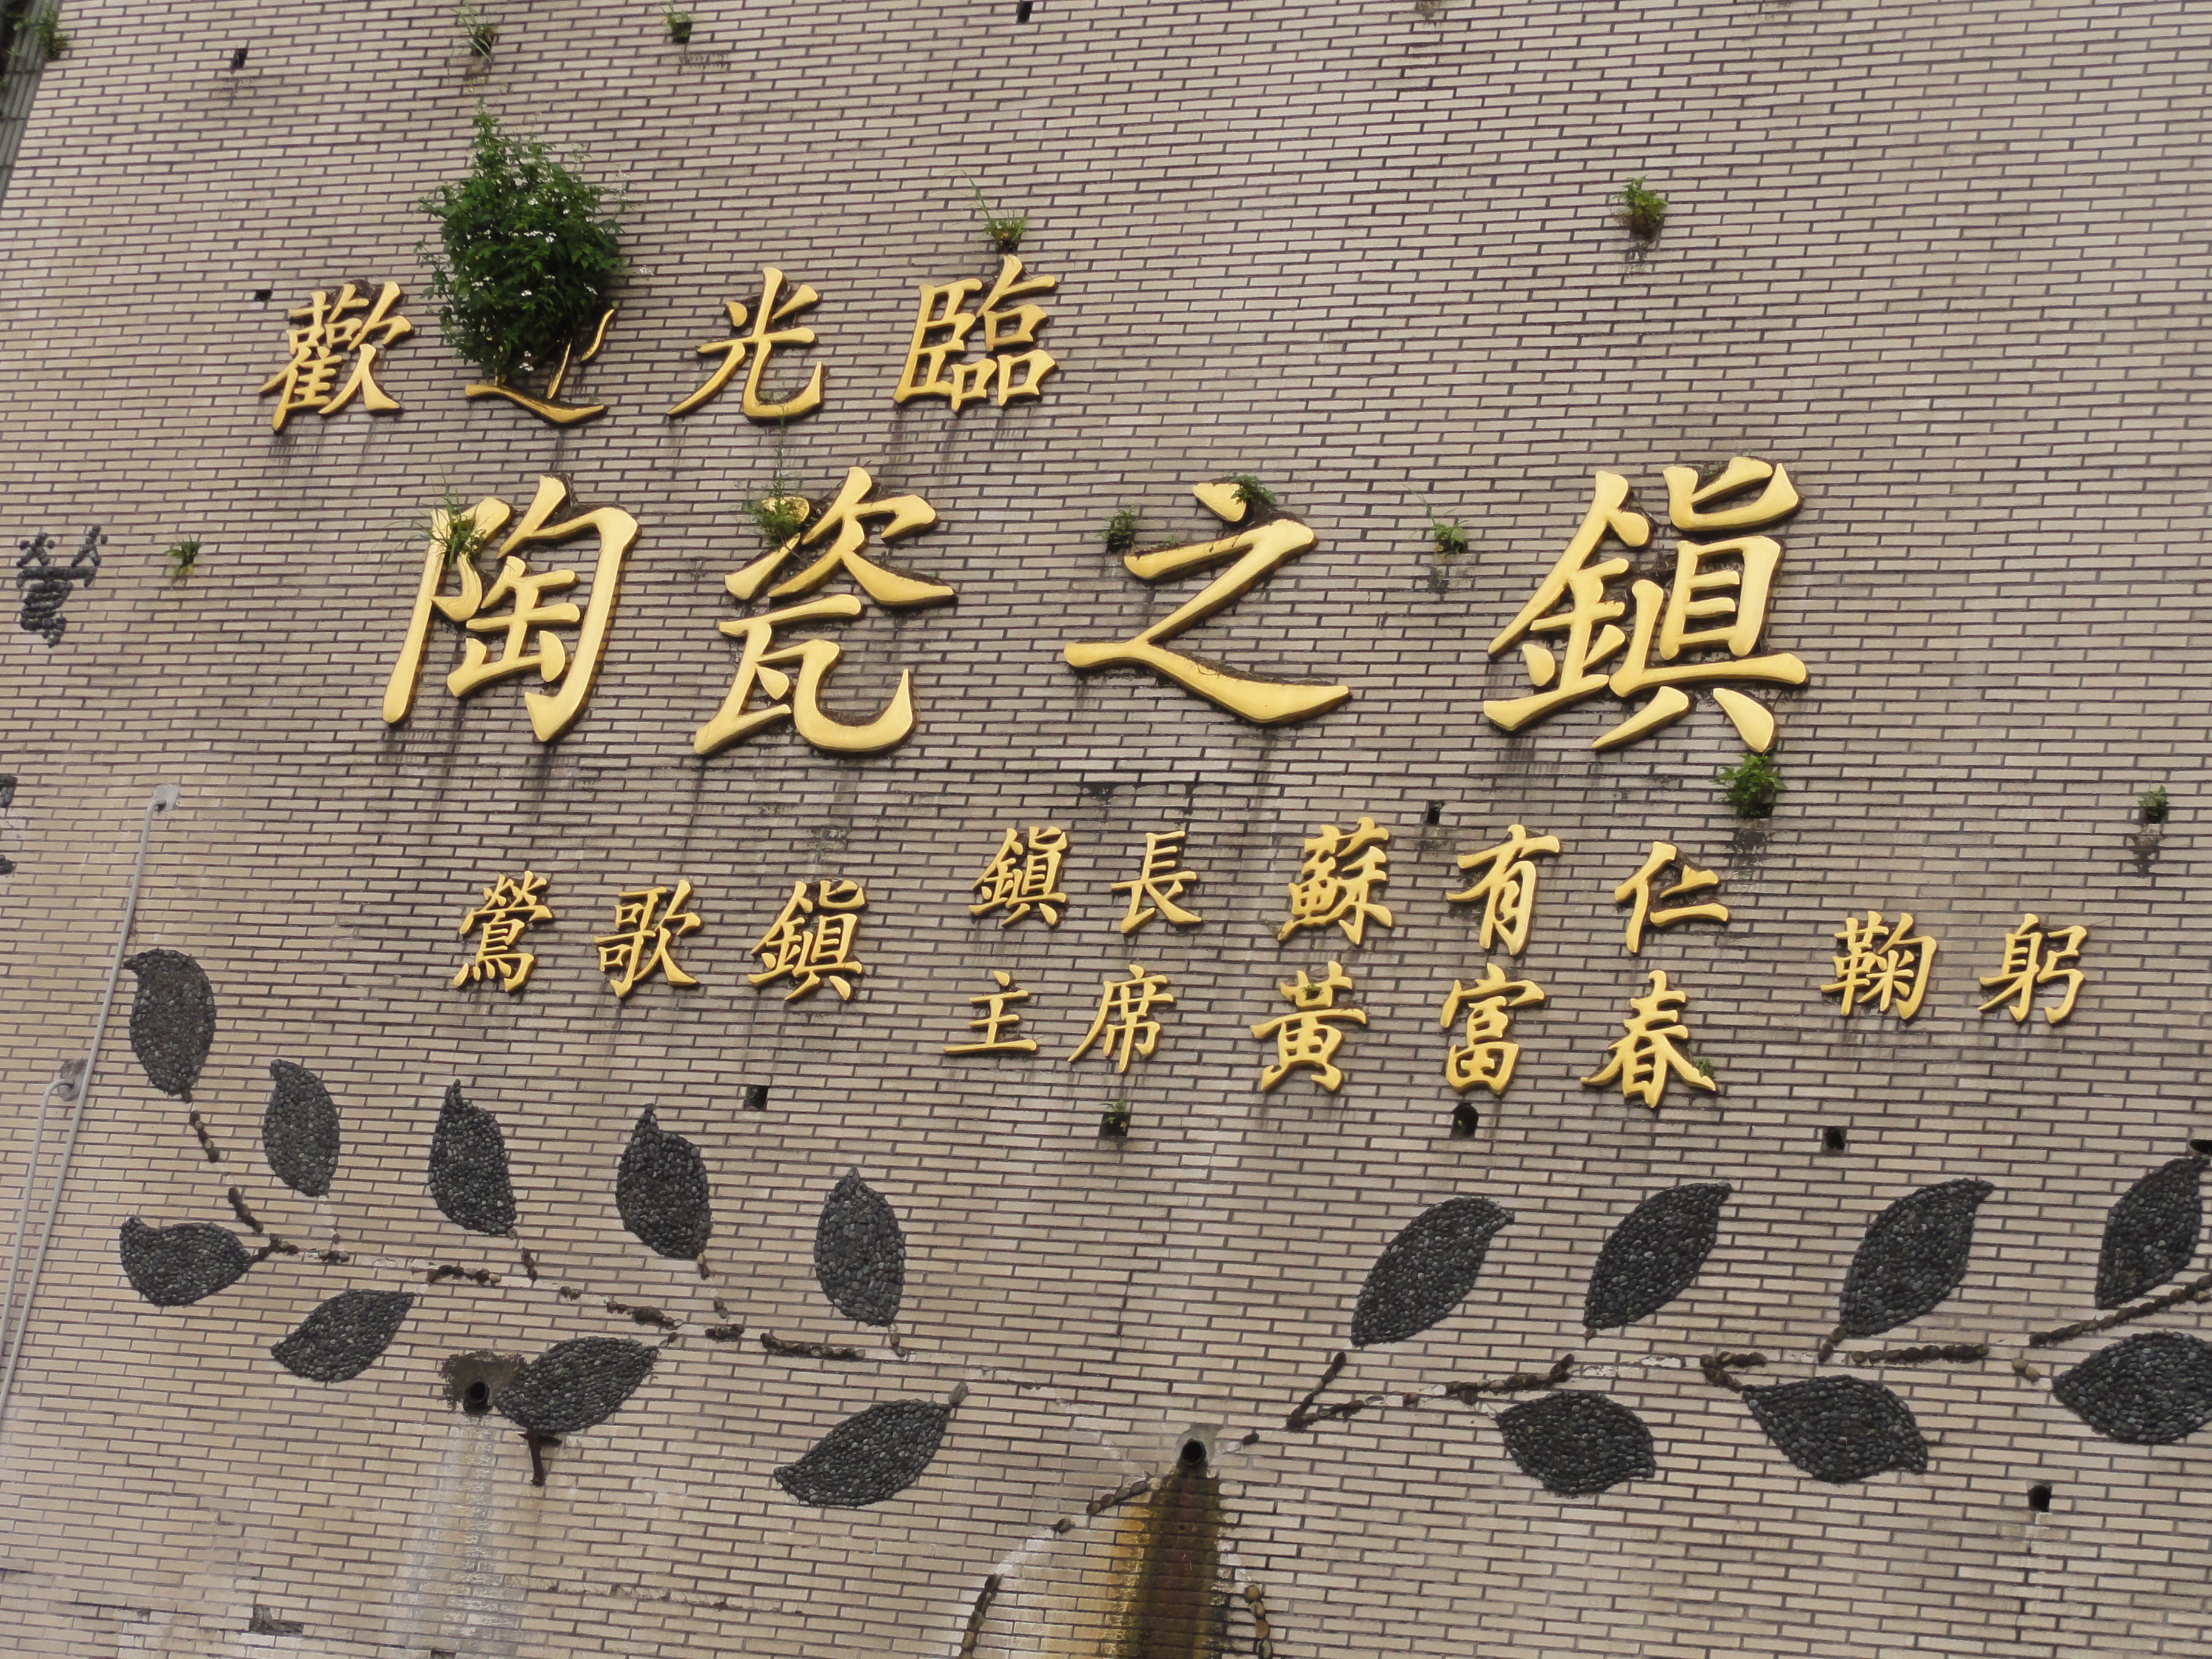 歡迎光臨
陶瓷之鎮
鶯歌鎮
鎮長蘇有仁
主席黃富春
鞠躬